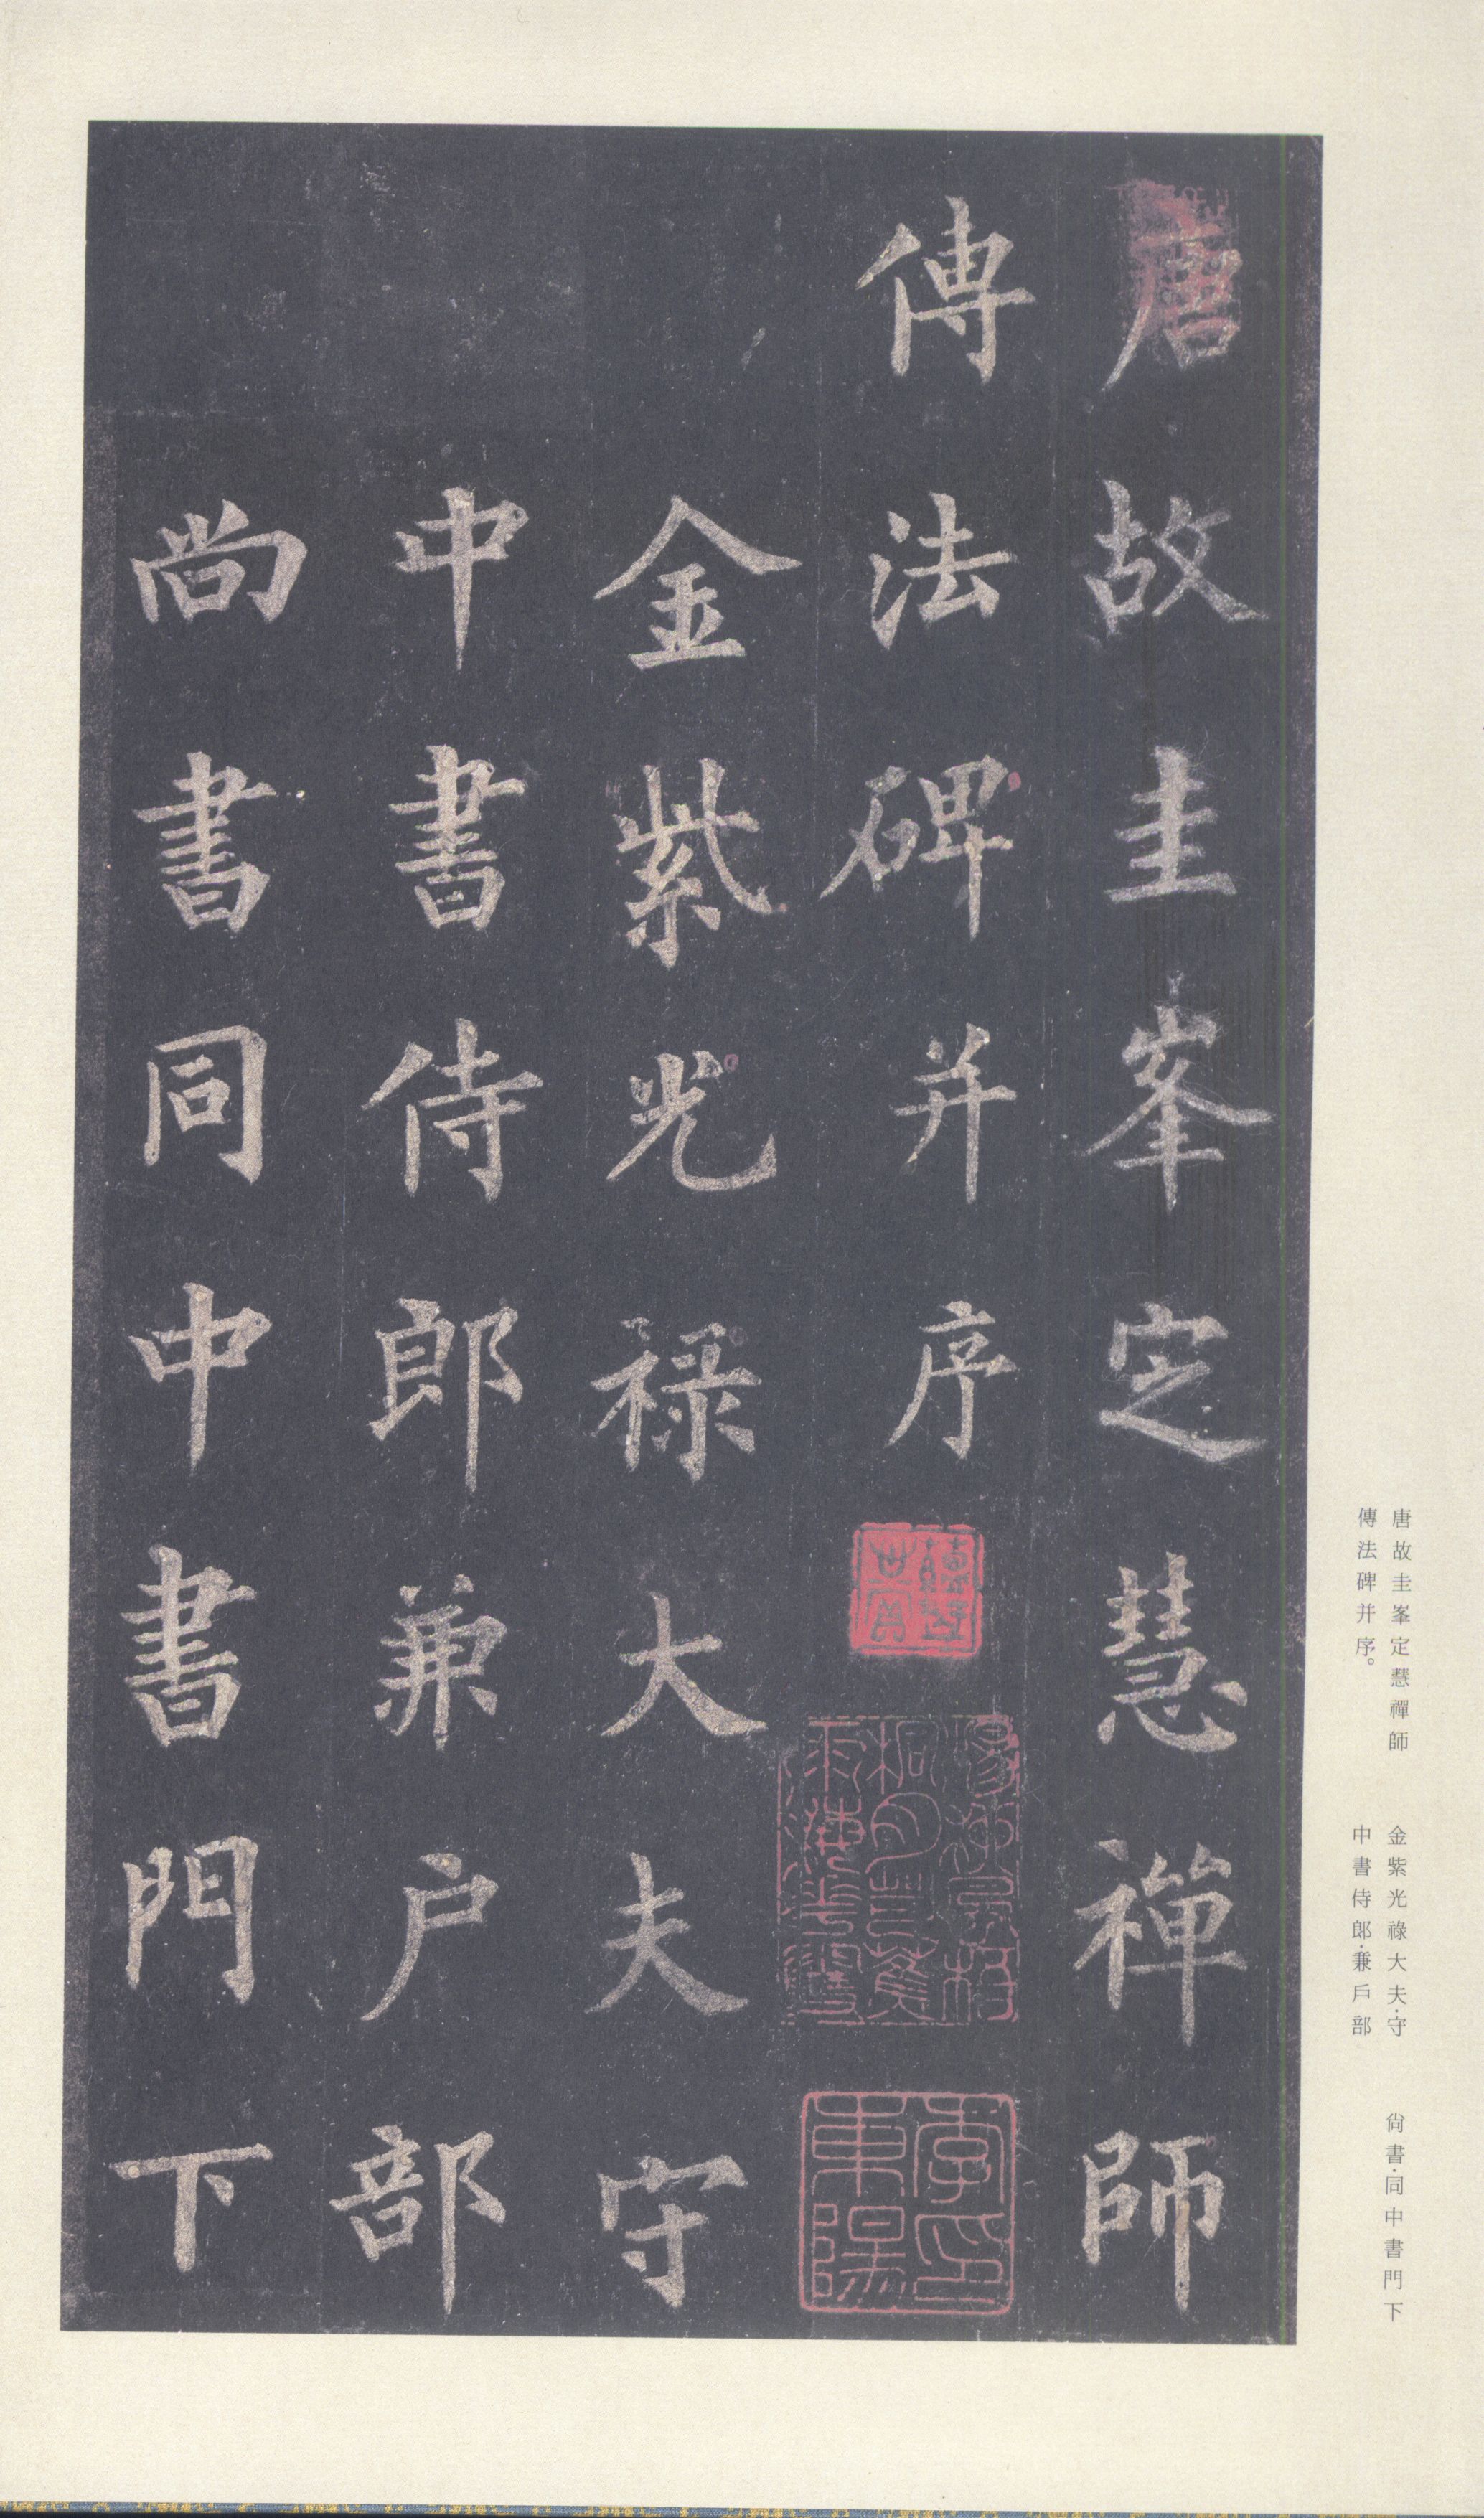 唐故圭峯定慧禪師
傳法碑并序
金紫光禄大夫守
中書侍郎兼户部
尚書同中書門下
唐故圭峯定慧禪師
傳法碑并序。
金紫光祿大夫·守
中書侍郎·兼戶部
尙書·同中書門下